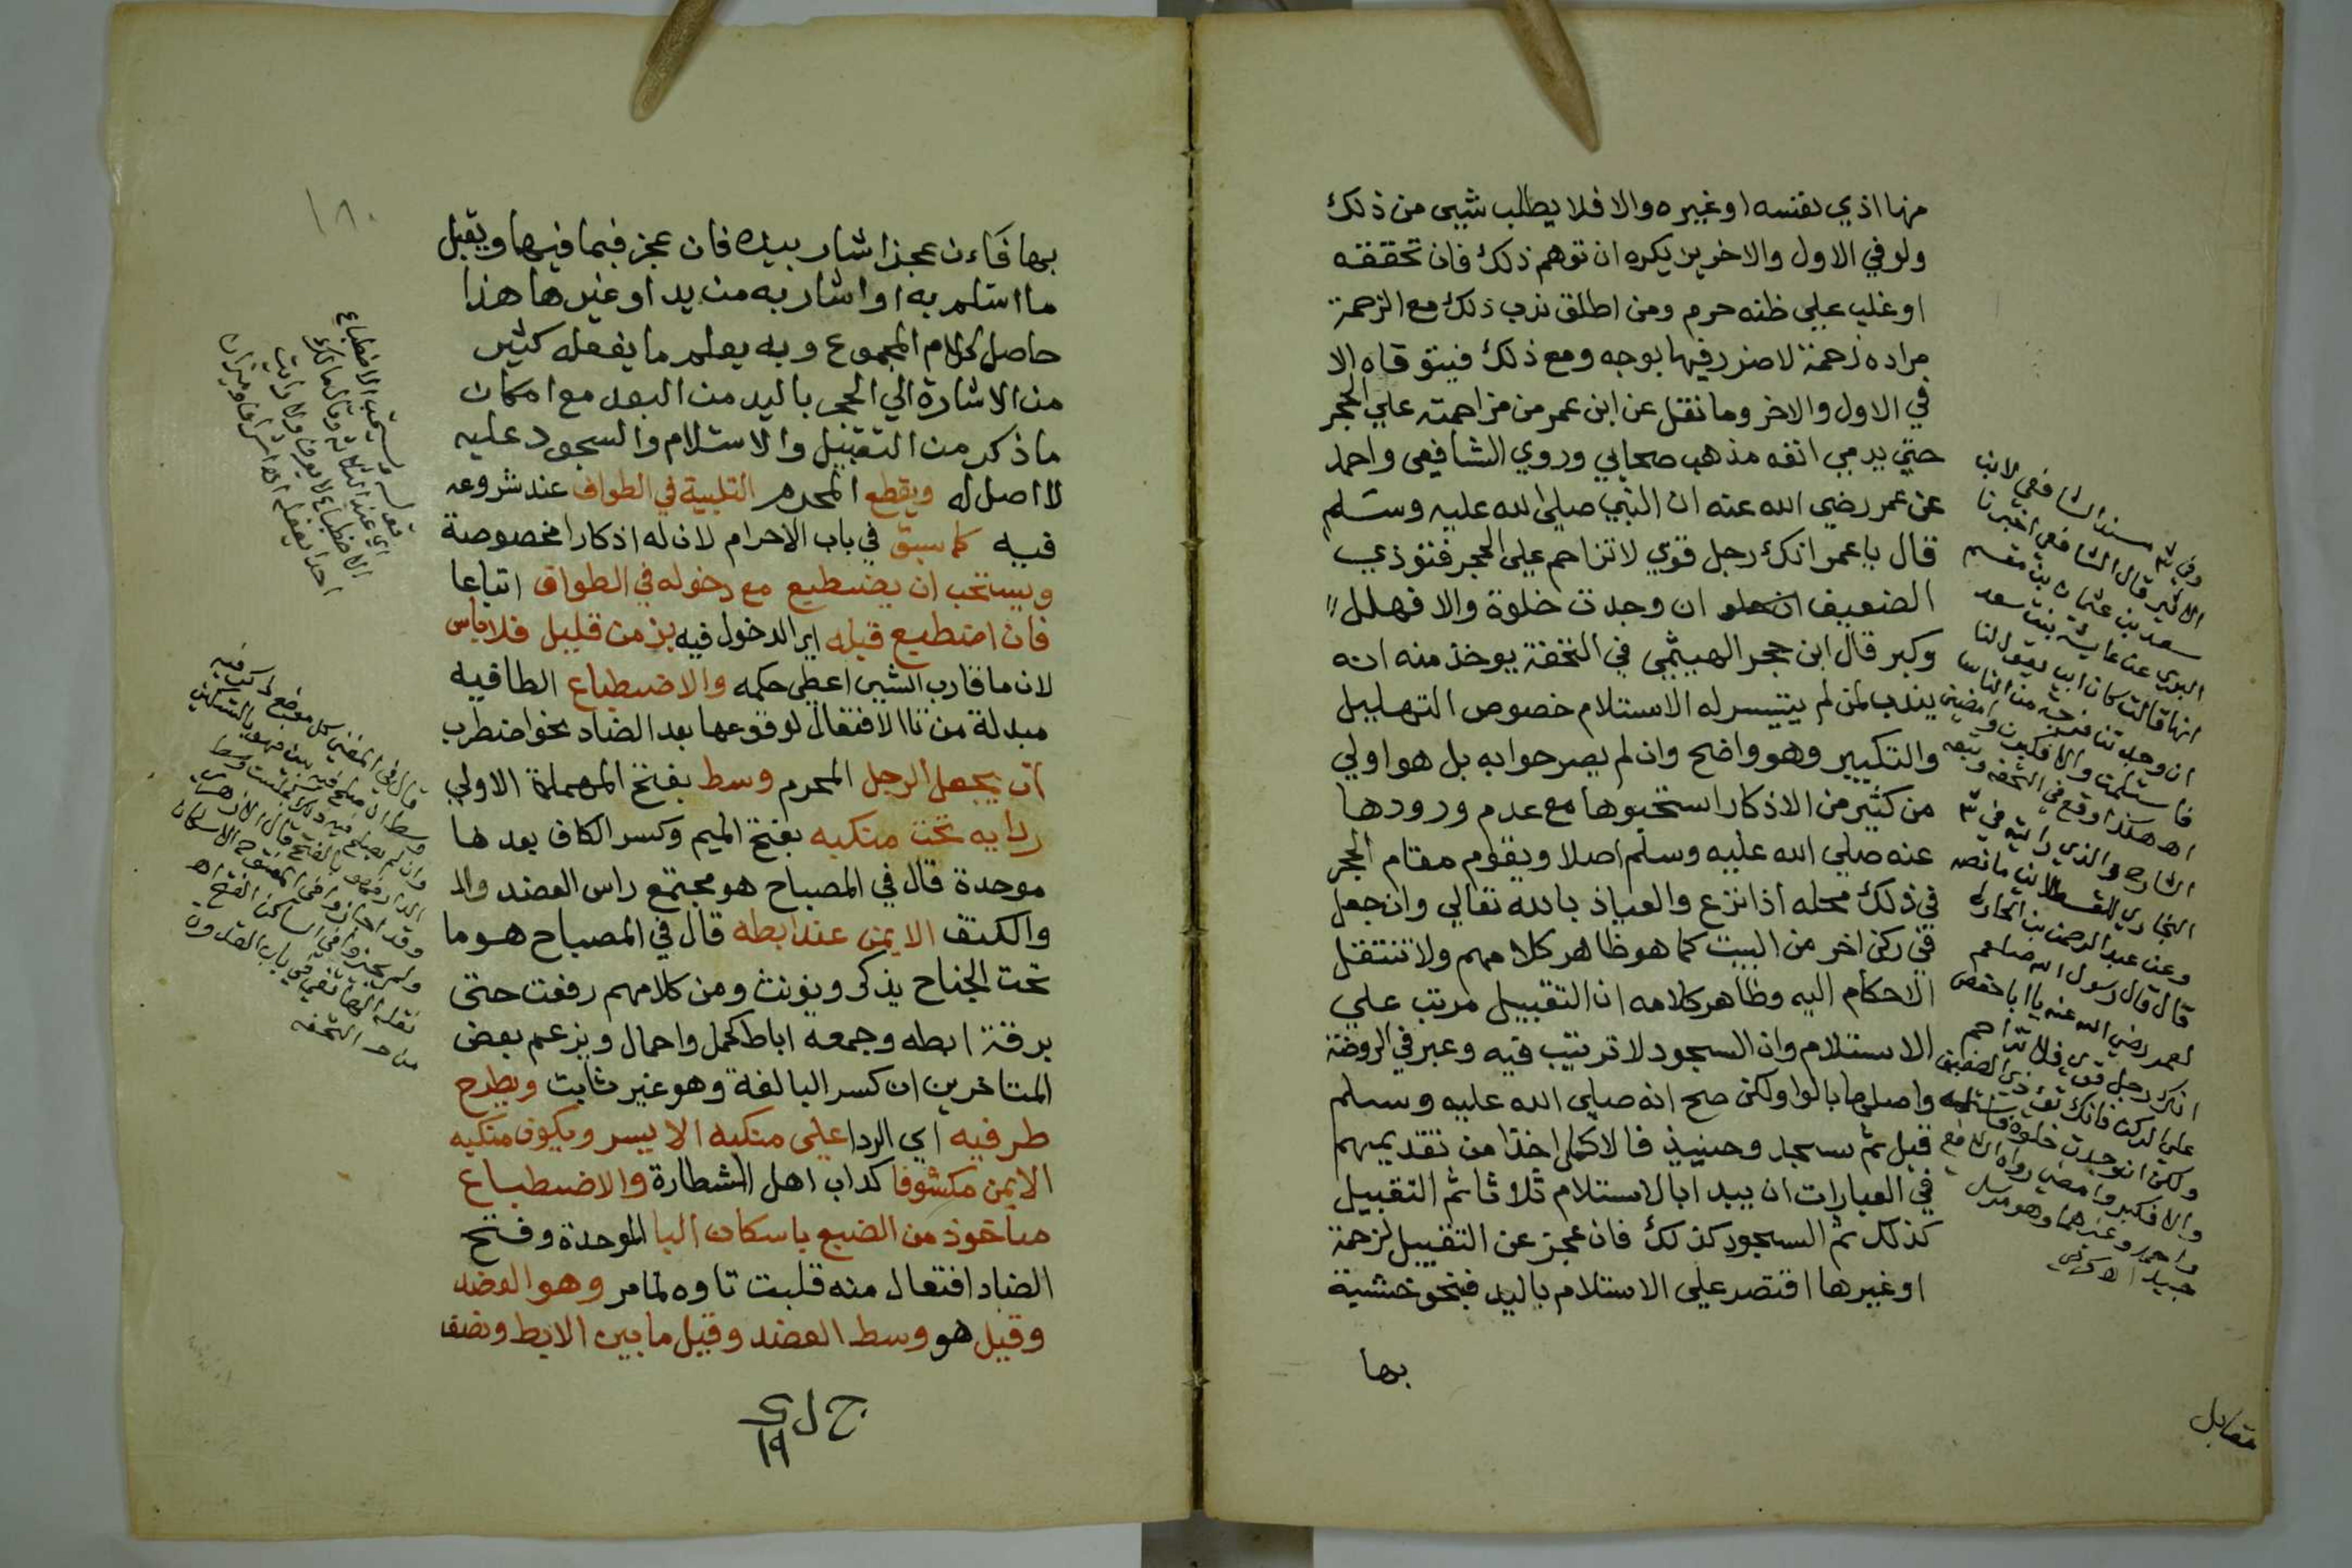 منها اذي لنفسه او غيره والا فلا يطلب شيي من ذلك
ولو في الاول والاخر بل يكره ان توهم ذلك فان تحققه
او غلب علي ظنه حرم ومن اطلق ندب ذلك مع الزحمة
مراده زحمة لا ضرر فيها بوجه ومع ذلك فيتوقاه الا
في الاول والاخر وما نقل عن ابن عمر من مزاحمته علي الحجر
حتي يدمي انفه مذهب صحابي وروي الشافعي واحمد
عن عمر رضي الله عنه ان النبي صلي الله عليه وسلم
قال يا عمر انك رجل قوي لا تزاحم علي الحجر فتوذي
الضعيف ان وجدت خلوة والا فهلل
وكبر قال ابن حجر الهيثمي في التحفة يوخذ منه انه
يندب لمن لم يتيسر له الاستلام خصوص التهليل
والتكبير وهو واضح وان لم يصرحوا به بل هو اولي
من كثير من الاذكار استحبوها مع عدم ورودها
عنه صلي الله عليه وسلم اصلا ويقوم مقام الحجر
في ذلك محله اذا نزع والعياذ بالله تعالي وان جعل
في ركن اخر من البيت كما هو ظاهر كلامهم ولا تنتقل
الاحكام اليه وظاهر كلامه ان التقبيل مرتب علي
الاستلام وان السجود لا ترتيب فيه وعبر في الروضة
واصلها بالواو لكن صح انه صلي الله عليه وسلم
قبل ثم سجد وحينيذ فالاكمل اخذا من تقديمهم
في العبارات ان يبدا بالاستلام ثلاثا ثم التقبيل
كذلك ثم السجود كذلك فان عجز عن التقبيل لزحمة
او غيرها اقتصر علي الاستلام باليد فبنحو خشبة
بها
وفي مسند الشافعي لابن
الاثير قال الشافعي اخبرنا
سعد بن عثمان بن مقسم
عن عايشة بنت سعد
انها قالت كان ابي يقول لنا
ان وجدتن فرجة من الناس
فاستلمن والا فكبرن وامضين
اهـ هكذا وقع في التحفة وتبعه
الشارح والذي رايته في
البخاري للقسطلاني ما نصه
وعن عبد الرحمن بن الحارث
قال قال رسول الله صلعم
لعمر رضي الله عنه يا ابا حفص
انك رجل قوي فلا تزاحم
علي الركن فانك تؤذي الضعيف
ولكن ان وجدت خلوة فاستلمه
والا فكبر وامض رواه الشافعي
واحمد وغيرهما وهو مرسل
جيد
مقابل
١٨٠
بها فاءن عجز اشار بيده فان عجز فبما فيها ويقبل
ما استلم به او اشار به من يد او غيرها هذا
حاصل كلام المجموع وبه يعلم ما يفعله كثير
من الاشارة الي الحجر باليد من البعد مع امكان
ما ذكر من التقبيل والاستلام والسجود عليه
لا اصل له ويقطع المحرم التلبية في الطواف عند شروعه
فيه كما سبق في باب الاحرام لان له اذكارا مخصوصة
ويستحب ان يضطبع مع دخوله في الطواف اتباعا
فان اضطبع قبله اي الدخول فيه بزمن قليل فلا باس
لان ما قارب الشيى اعطي حكمه والاضطباع الطا فيه
مبدلة من تا الافتعال لوقوعها بعد الضاد نحو اضطرب
ان يجعل الرجل المحرم وسط بفتح المهملة الاولي
ردايه تحت منكبه بفتح الميم وكسر الكاف بعدها
موحدة قال في المصباح هو مجتمع راس العضد والد
والكتف الايمن عند ابطه قال في المصباح هو ما
تحت الجناح يذكر ويونث ومن كلامهم رفعت حتى
برقت ابطه وجمعه اباط كحمل واحمال ويزعم بعض
المتاخرين ان كسر البا لغة وهو غير ثابت ويطرح
طرفيه اي الردا علي منكبه الايسر ويكون منكبه
الايمن مكشوفا كداب اهل الشطارة والاضطباع
ماخوذ من الضبع باسكان البا الموحدة وفتح
الضاد افتعال منه قلبت تاوه لما مر وهو العضد
وقيل هو وسط العضد وقيل ما بين الابط ونصف
قوله ويستحب الاضطباع
اي عند الثلاثة وقال مالك
الاضطباع لا يعرف ولا رايت
احدا يفعله
قال في المغني كل موضع ذكر فيه
وسط ان صلح فيه بين فهو بالتسكين
وان لم يصلح فيه ذلك كجلست وسط
الدار فهو بالفتح قال الازهري
وقد اجازوا في المفتوح الاسكان
ولم يجيزوا في الساكن الفتح اهـ